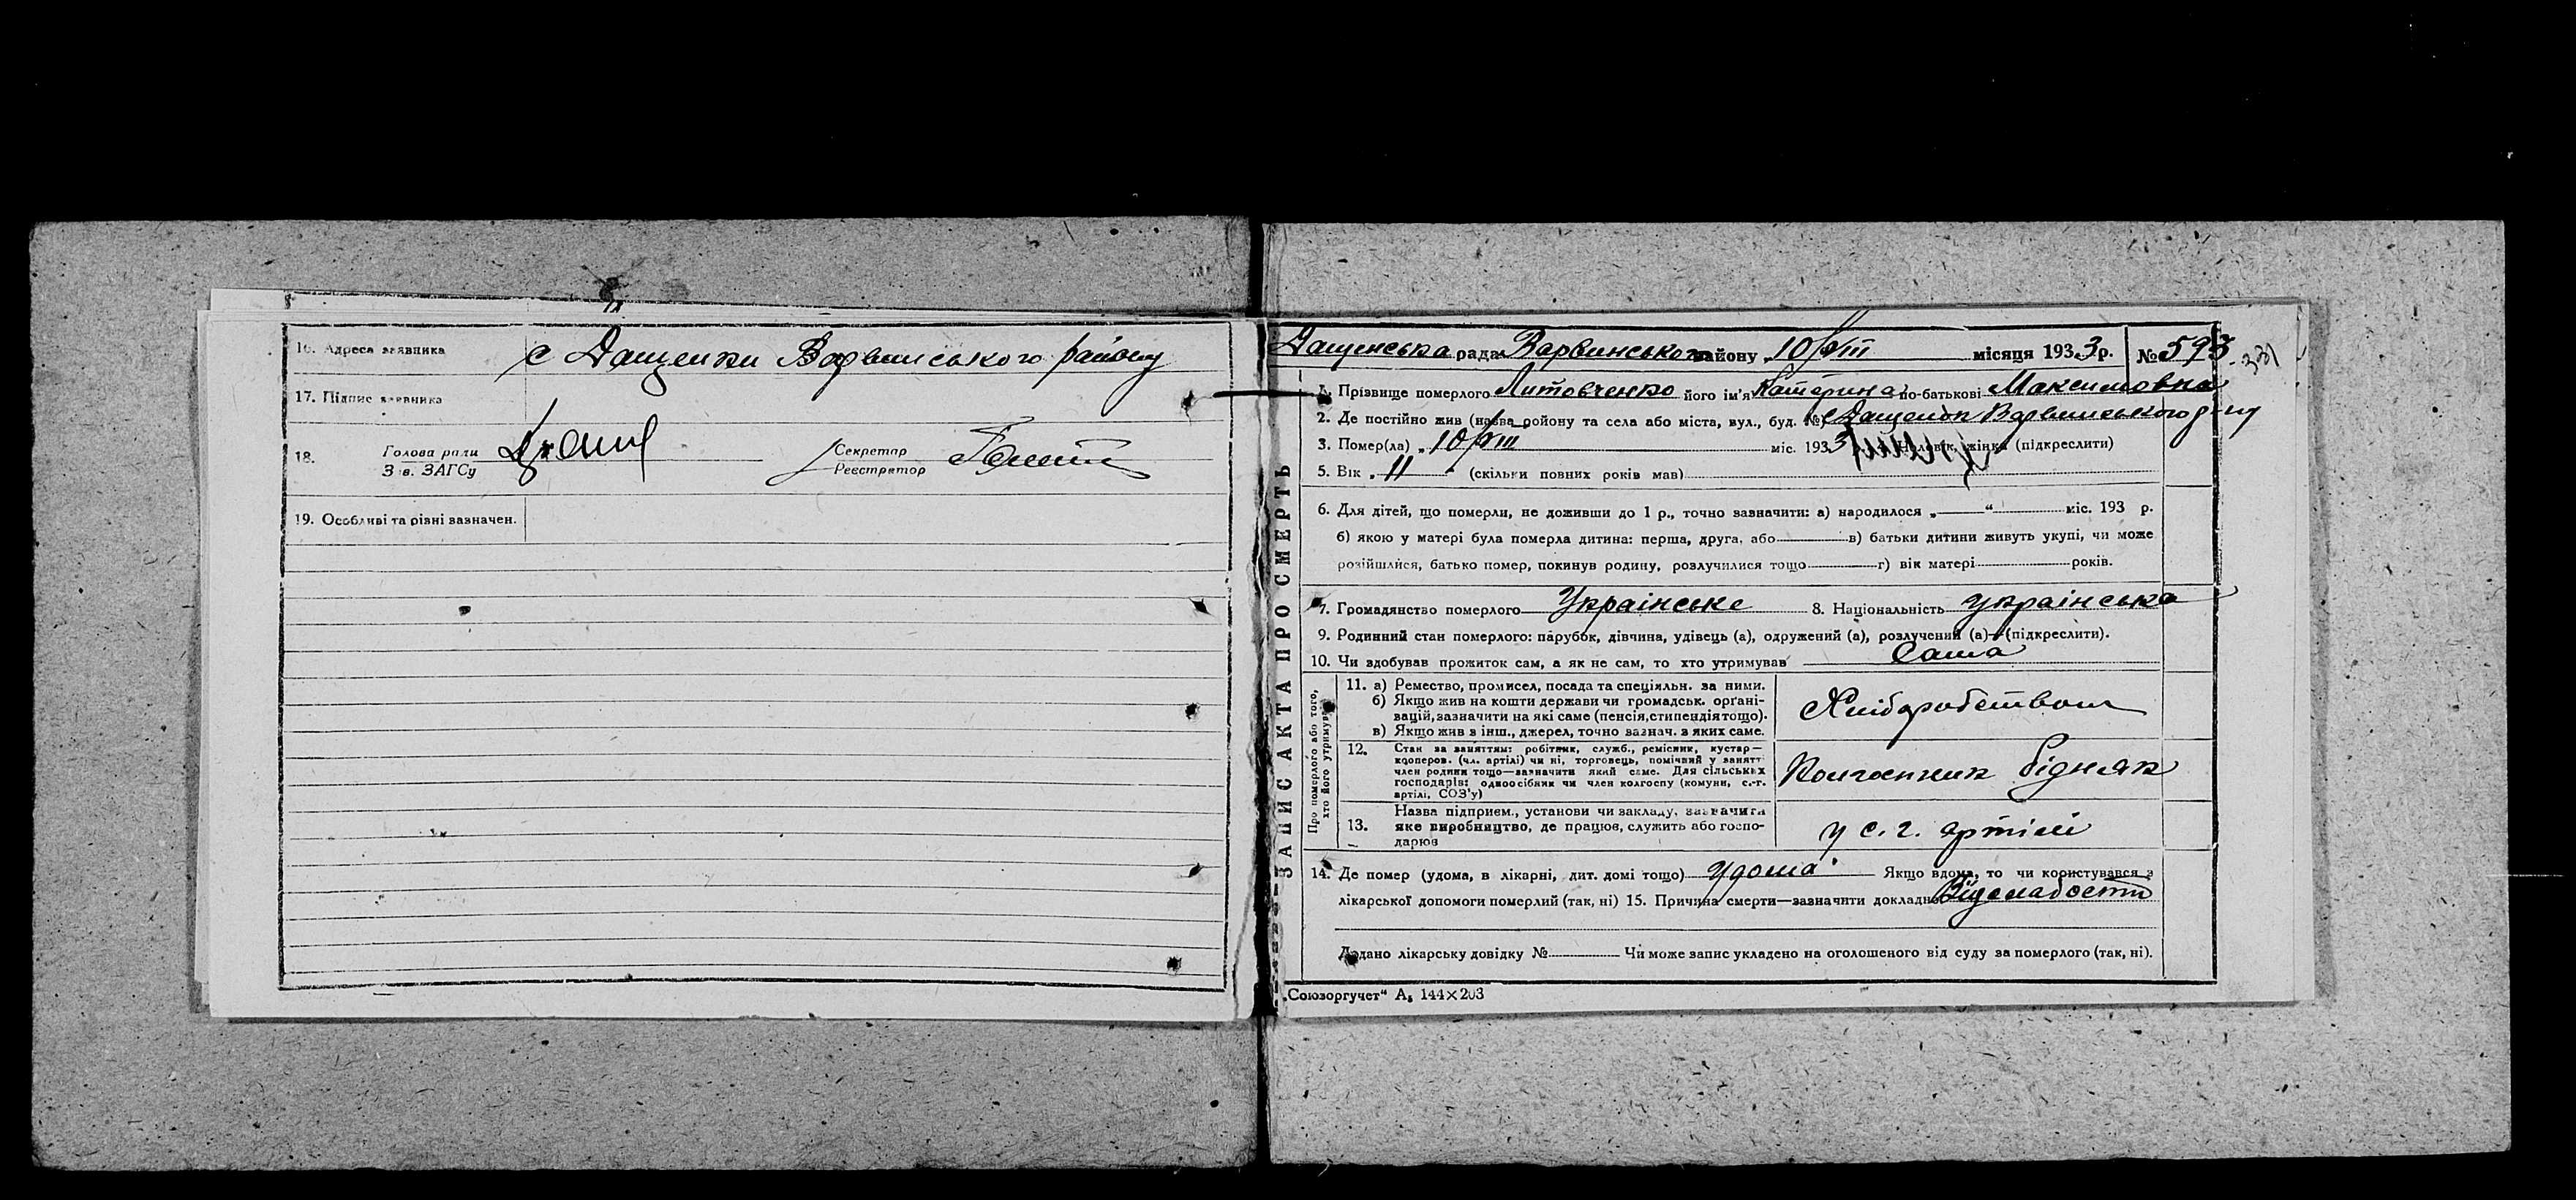 16. Адреса заявника с Дащенки Варвинського району
17. Підпис заявника
18. Голова ради Секретар
Зав. ЗАГСу Реєстратор
19. Особливі та різні зазначен.
ЗАПИС АКТА ПРО СМЕРТЬ
Дащенська рада Варвинського району „10/VIII місяця 1933 р. № 593
1. Прізвище померлого Литовченко його ім'я Катерина по-батькові Максимовна
2. Де постійно жив (назва району та села або міста, вул., буд. №) с Дащенки Варвинського р-ну
3. Помер(ла) „10/VIII міс. 1933 Чоловік, жінка (підкреслити)
5. Вік „11“ (скільки повних років мав)
6. Для дітей, що померли, не доживши до 1 р., точно зазначити: а) народилося „ “ міс. 193 р.
б) якою у матері була померла дитина: перша, друга, або в) батьки дитини живуть укупі, чи може
розійшлися, батько помер, покинув родину, розлучилися тощо г) вік матері років.
7. Громадянство померлого Українське 8. Національність українська
9. Родинний стан померлого: парубок, дівчина, удівець (а), одружений (а), розлучений (а)—(підкреслити).
10. Чи здобував прожиток сам, а як не сам, то хто утримував Сама
Про померлого або того, хто його утримував
11. а) Ремество, промисел, посада та спеціяльн. за ними.
б) Якщо жив на кошти держави чи громадськ. орґані-
зацій, зазначити на які саме (пенсія, стипендія тощо).
в) Якщо жив з інш., джерел, точно зазнач. з яких саме.
Хліборобством
12. Стан за заняттям: робітник, служб., ремісник, кустар—
кооперов. (чл. артілі) чи ні, торговець, помічний у занятт
член родини тощо—зазначити який саме. Для сільських
господарів: одноосібник чи член колгоспу (комуни, с.-г.
артілі, СОЗ'у)
Колгоспник бідняк
13. Назва підприєм., установи чи закладу, зазначити
яке виробництво, де працює, служить або госпо-
дарює
у с. г. артілі
14. Де помер (удома, в лікарні, дит. домі тощо) Удома Якщо вдома, то чи користувався з
лікарської допомоги померлий (так, ні) 15. Причина смерти—зазначити докладно Від слабости
Додано лікарську довідку № Чи може запис укладено на оголошеного від суду за померлого (так, ні).
„Союзоргучет“ А5 144×203